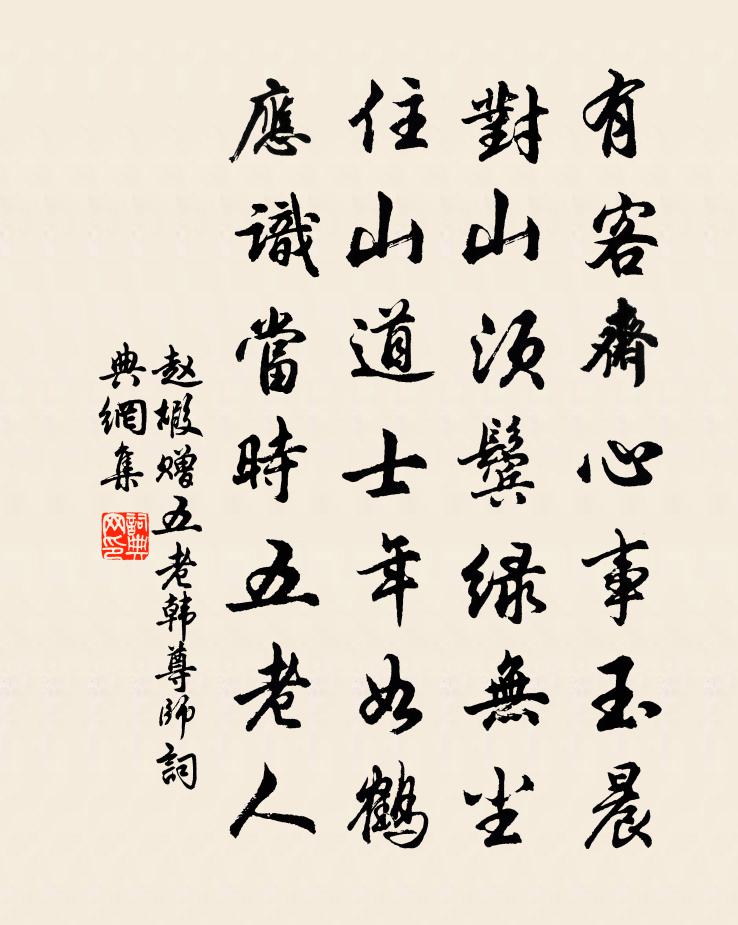 有客齋心事玉晨
對山須鬢緑無尘
住山道士年如鶴
應識當時五老人
赵嘏赠五老韩尊師詞
典網集
詞典网印